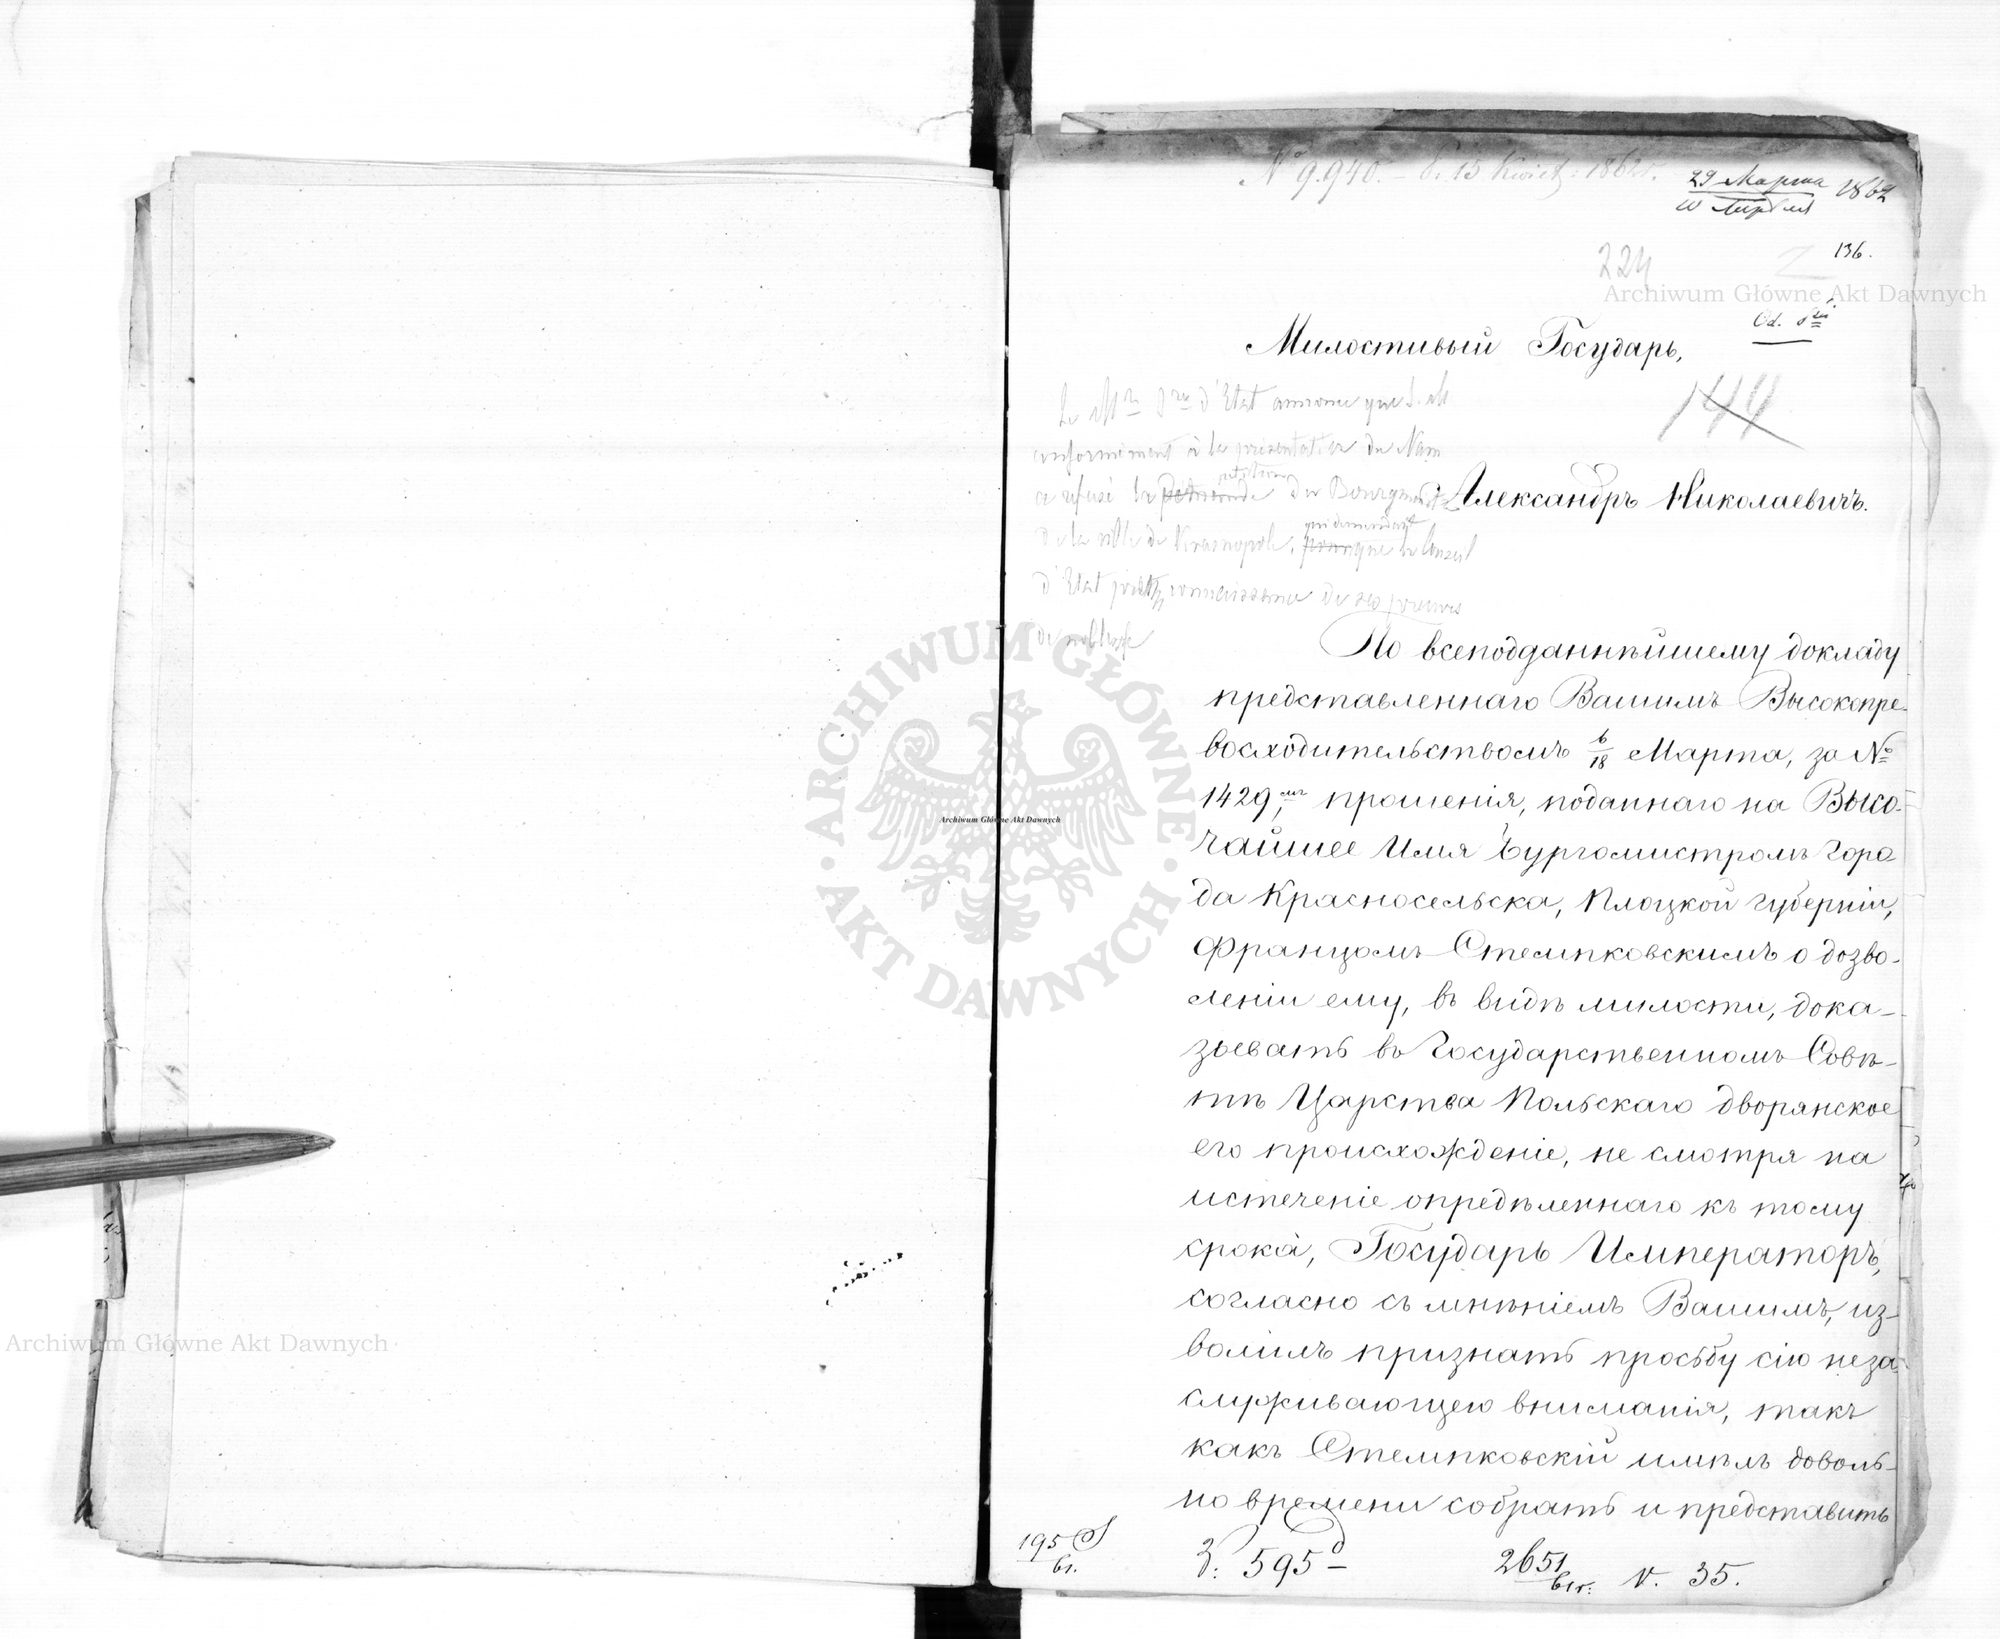 № 9.940. — d. 15 Kwiet: 1862 r.
29 Марта 1862
10 Апрѣля
136.
224
Archiwum Główne Akt Dawnych
Od.
Милостивый Государь,
144
Le M re S re d'Etat annonce que S. M
conformément à la présentation du Nam
a refusé la pétition du Bourgmestre
de la ville de Krasnopole, qui demandait que le Conseil
d'Etat prit connaissance de ses preuves
de noblesse
Александръ Николаевичъ.
По всеподданнѣйшему докладу
представленнаго Вашимъ Высокопре-
восходительствомъ 6/18 Марта, за №
1429, мъ прошенія, поданнаго на Высо-
чайшее Имя Бургомистромъ горо
да Красносельска, Плоцкой губерніи,
Францомъ Стемпковскимъ о дозво-
леніи ему, въ видѣ милости, дока-
зывать въ Государственномъ Совѣ-
тѣ Царства Польскаго дворянское
его происхожденіе, не смотря на
истеченіе опредѣленнаго къ тому
срока, Государь Императоръ,
согласно съ мнѣніемъ Вашимъ, из-
волилъ признать просьбу сію неза-
служивающею вниманія, такъ
какъ Стемпковскій имѣлъ доволь-
но времени собрать и представить
195
br.
595
2651
br:
V. 35.
ARCHIWUM GŁÓWNE AKT DAWNYCH
Archiwum Główne Akt Dawnych
Archiwum Główne Akt Dawnych